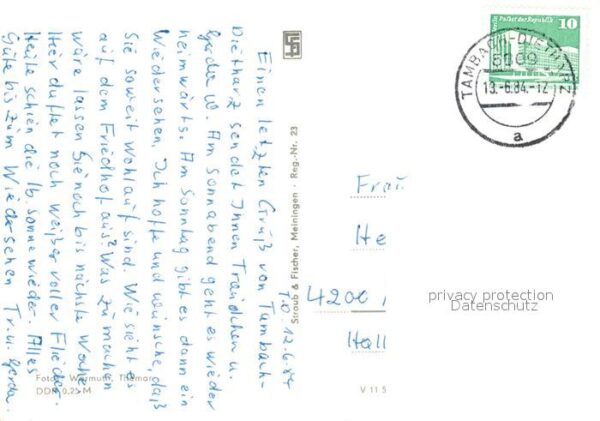 T.D. 12.6.84
Einen letzten Gruß von Tambach-
Dietharz sendet Ihnen Traudchen u.
Gerda W. Am Sonnabend geht es wieder
heimwärts. Am Sonntag gibt es dann ein
Wiedersehen. Ich hoffe und wünsche, daß
Sie soweit wohlauf sind. Wie sieht es
auf dem Friedhof aus? Was zu machen
wäre lassen Sie noch bis nächste Woche.
Hier duftet noch weißer voller Flieder.
Heute schien die lb. Sonne wieder. Alles
Gute bis zum Wiedersehen Tr. u. Gerda.
Foto: Wurmuth, Themar
DDR 0,25 M
V 11 5
Straub & Fischer, Meiningen · Reg.-Nr. 23
Berlin Palast der Republik
10
TAMBACH-DIETHARZ
5809
13.-6.84.-12
a
Frau
He
4200
Hall
privacy protection
Datenschutz